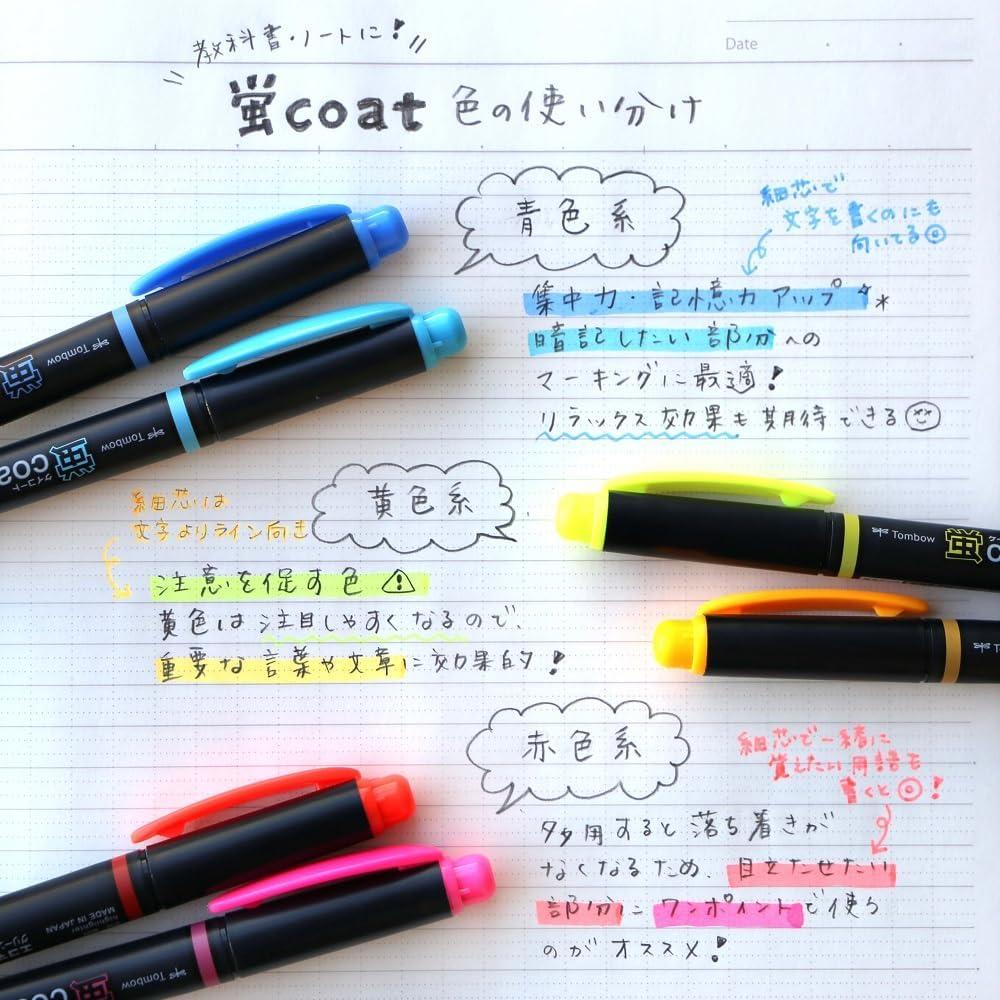 教科書・ノートに!
Date
蛍coat 色の使い分け
青色系
細芯で
文字を書くのにも
向いてる◎
集中力・記憶力アップ
暗記したい部分への
マーキングに最適!
リラックス効果も期待できる
Tombow
蛍
Tombow
蛍coa
ケイコート
黄色系
細芯は
文字よりライン向き
注意を促す色
黄色は注目しやすくなるので、
重要な言葉や文章に効果的!
Tombow
蛍
赤色系
細芯で一緒に
覚えたい用語も
書くと◎!
多用すると落ち着きが
なくなるため、目立たせたい
部分にワンポイントで使う
のがオススメ!
highlighter
MADE IN JAPAN
Tombow